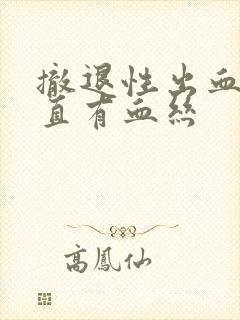 撤退性出血
直有血丝
高鳳仙